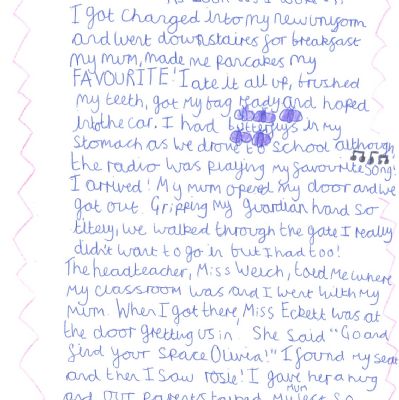 As soon as I woke
I got changed into my new uniform
and went downstaires for breakfast
my mum, made me pancakes my
FAVOURITE! I ate it all up, brushed
my teeth, got my bag ready and hoped
into the car. I had butterflys in my
stomach as we drove to school although,
the radio was playing my favourite song!
I arrived! My mum opened my door and we
got out. Gripping my guardian hand so
titely, we walked through the gate I really
didn't want to go in but I had too!
The headteacher, Miss Welch, told me where
my classroom was and I went with my
mum. When I got there, Miss Eckett was at
the door gretting us in. She said "Go and
find your space Olivia!" I found my seat
and then I saw rosie! I gave her a hug
and our parents talked. mum